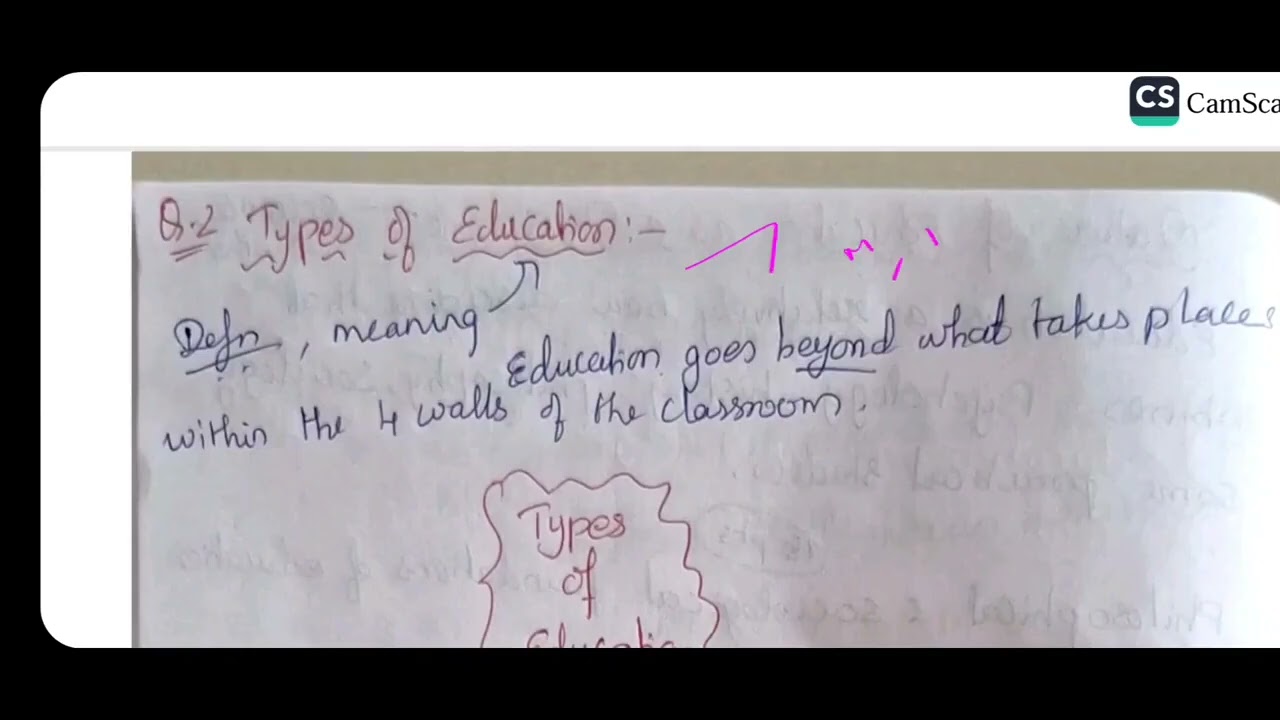 CS CamSca
Q.2 Types of Education:-
Defn, meaning
Education goes beyond what takes places
within the 4 walls of the classroom.
Types
of
Educatio